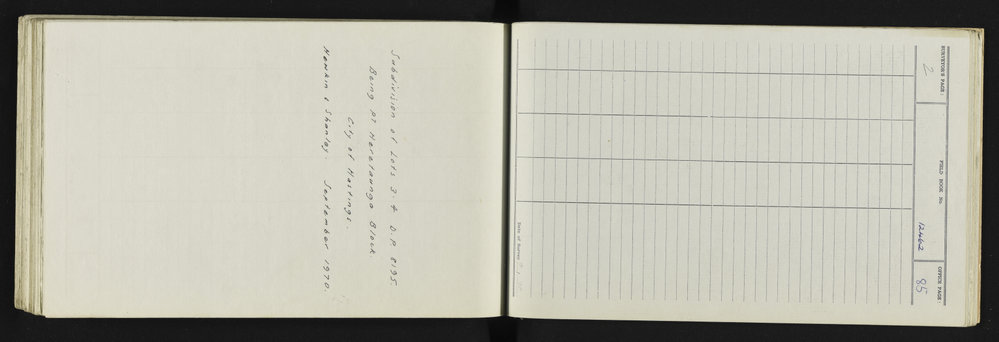 Subdivision of Lots 3-4 D.P. 8195
Being Pt Heretaunga Block
City of Hastings.
September 1970.
SURVEYOR'S PAGE:
2
FIELD BOOK No.
12462
OFFICE PAGE:
85
Date of Survey